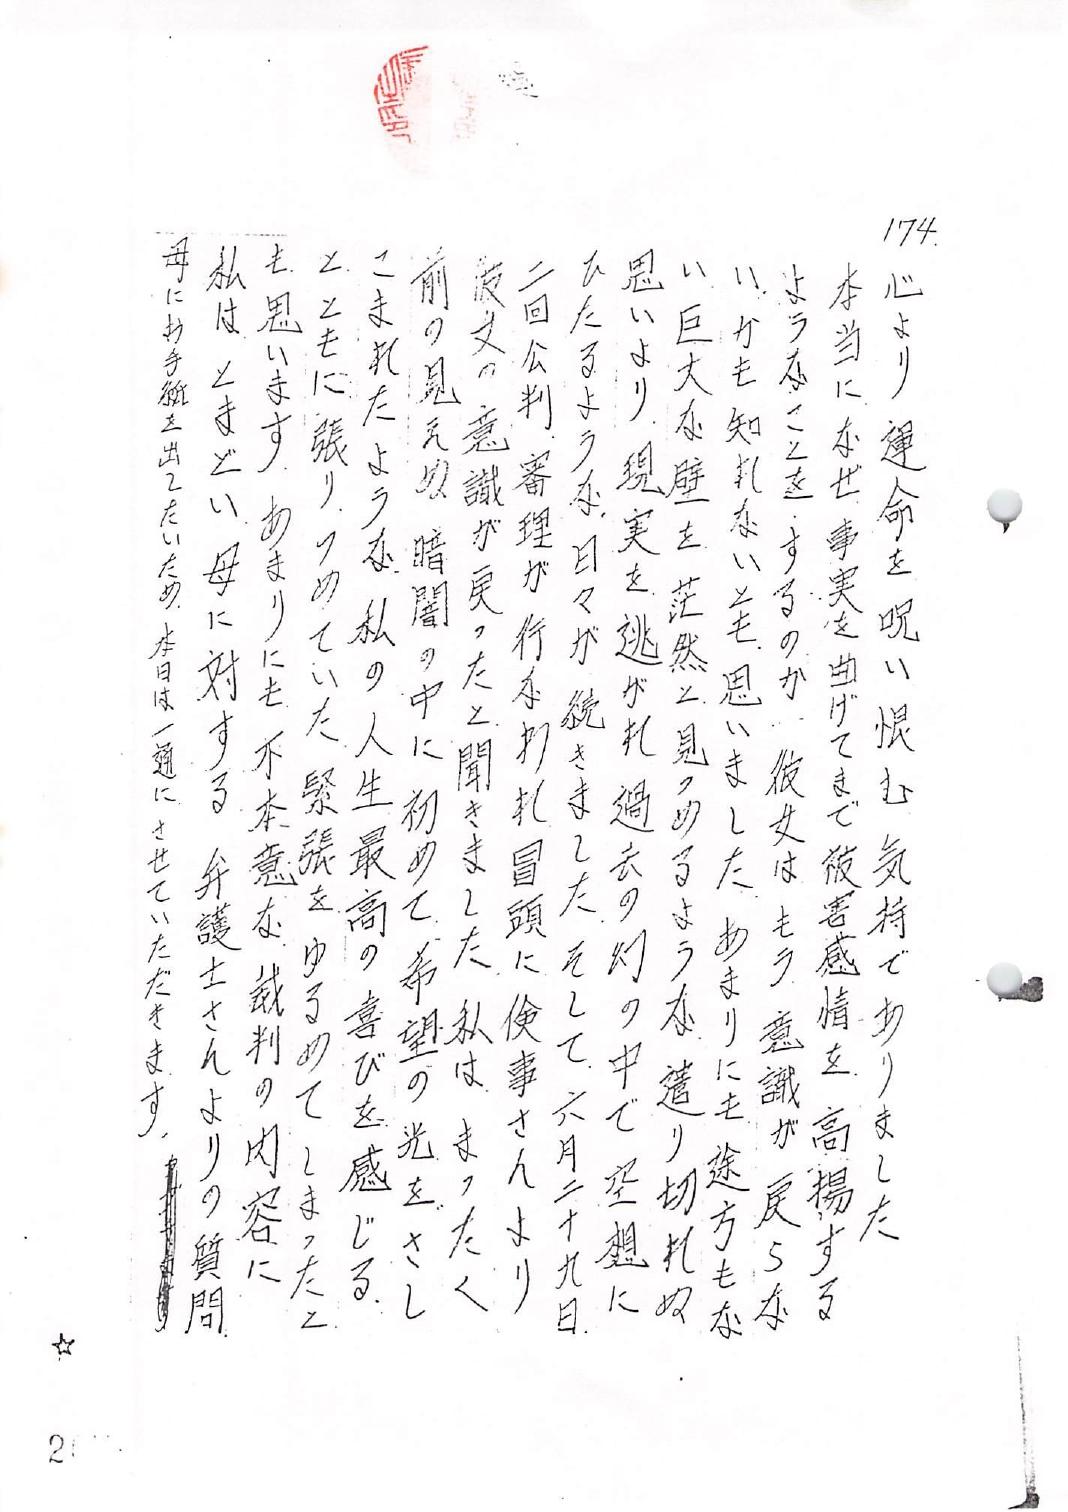 174.
心より 運命を呪い恨む 気持でありました
本当になぜ事実を曲げてまで被害感情を 高揚する
ようなことを するのか 彼女は もう 意識が 戻らな
いかも知れないとも思いました あまりにも途方もな
い巨大な壁を茫然と見つめるような 遣り切れぬ
思いより 現実を逃がれ過去の幻の中で空想に
ひたるような 日々が続きました そして 六月二十九日
二回公判 審理が行なわれ冒頭に倹事さんより
彼女の意識が戻ったと聞きました 私は まったく
前の見えぬ 暗闇の中に 初めて 希望の光を さし
こまれたような 私の人生最高の喜びを感じる
とともに 張りつめていた 緊張をゆるめてしまったと
も思います あまりにも不本意な 裁判の内容に
私は とまどい 母に対する 弁護士さんよりの質問
母にお手紙を出していたいため 本日は一通にさせていただきます
☆
2